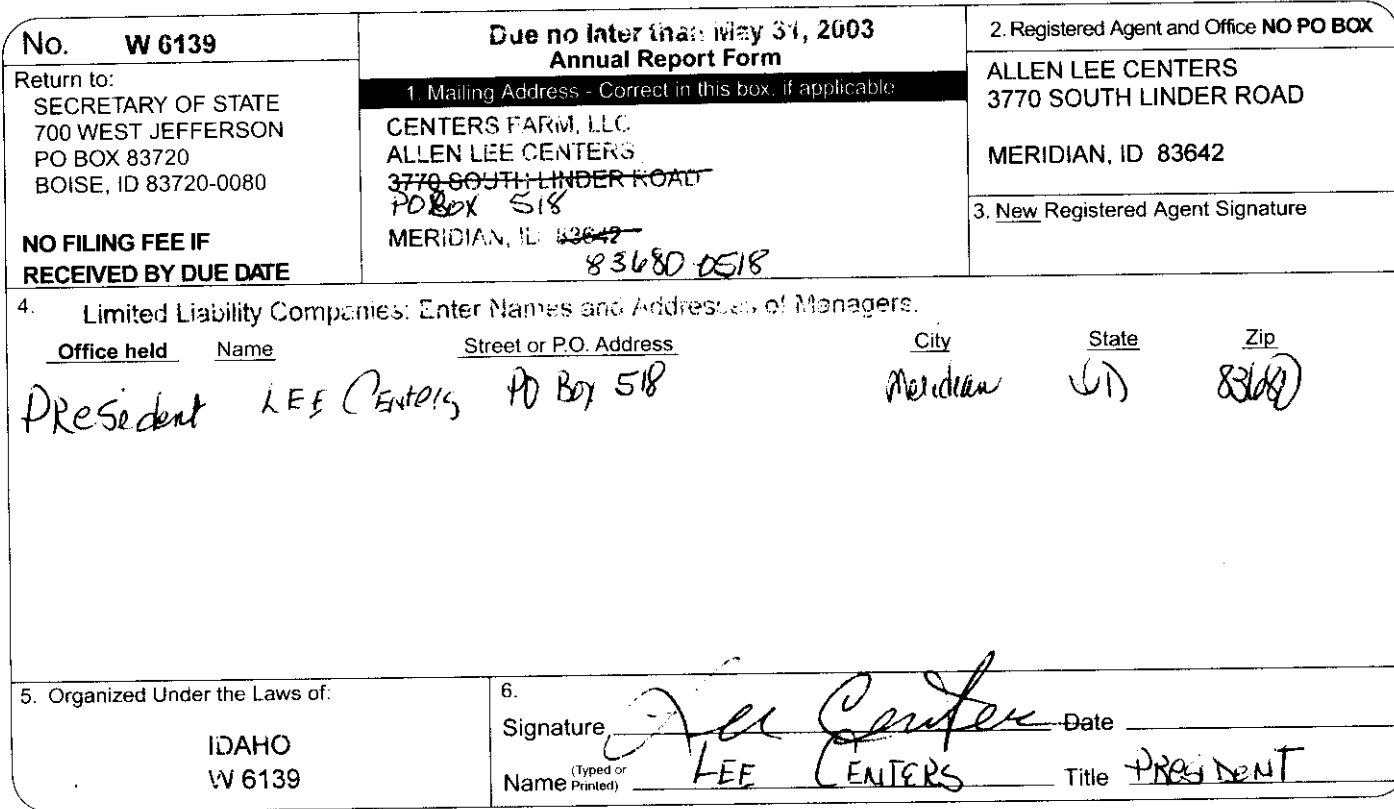 No. W 6139
Return to:
SECRETARY OF STATE
700 WEST JEFFERSON
PO BOX 83720
BOISE, ID 83720-0080
NO FILING FEE IF
RECEIVED BY DUE DATE
Due no later than May 31, 2003
Annual Report Form
1. Mailing Address - Correct in this box, if applicable
CENTERS FARM, LLC
ALLEN LEE CENTERS
3770 SOUTH LINDER ROAD
PO BOX 518
MERIDIAN, ID 83642
83680-0518
2. Registered Agent and Office NO PO BOX
ALLEN LEE CENTERS
3770 SOUTH LINDER ROAD
MERIDIAN, ID 83642
3. New Registered Agent Signature
4. Limited Liability Companies: Enter Names and Addresses of Managers.
Office held Name Street or P.O. Address City State Zip
PResedent LEE CENters PO Box 518 Meridian ID 83680
5. Organized Under the Laws of:
IDAHO
W 6139
6.
Signature Lee Centers Date
Name (Typed or Printed) LEE CENTERS Title PResiDeNT